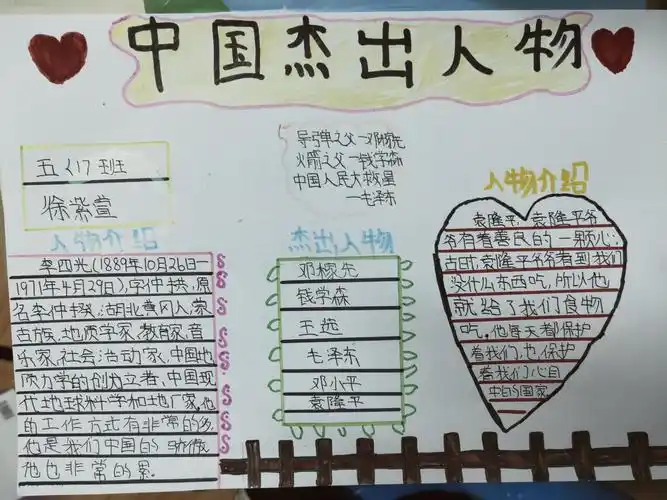 中国杰出人物
五〈1〉班
徐紫萱
导弹之父—邓稼先
火箭之父—钱学森
中国人民大救星
—毛泽东
人物介绍
李四光(1889年10月26日—
1971年4月29日),字仲拱,原
名李仲揆,湖北黄冈人,蒙
古族,地质学家,教育家,音
乐家,社会活动家,中国地
质力学的创立者,中国现
代地球科学和地
的工作方式有非常的多,
他是我们中国的骄傲
他也非常的累.
杰出人物
邓稼先
钱学森
王选
毛泽东
邓小平
袁隆平
人物介绍
袁隆平,袁隆平爷
爷有着善良的一颗心,
古时,袁隆平爷爷看到我们
没什么东西吃,所以他
就给了我们食物
吃,他每天都保护
着我们,也保护
着我们心目
中的国家